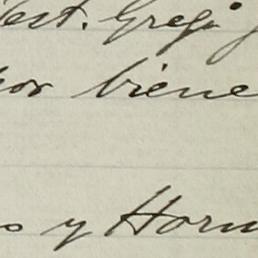 Vest. Greg
por biene
s y Horn